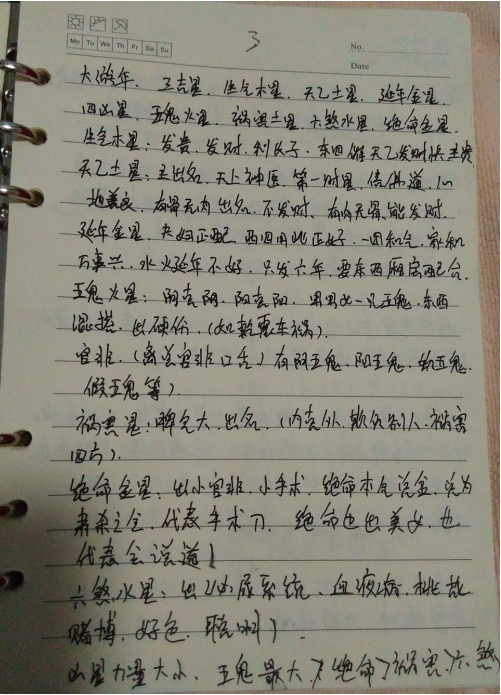 3
No.
Mo Tu We Th Fr Sa Su
Date
大游年. 三吉星. 生气木星. 天乙土星. 延年金星.
四凶星. 五鬼火星. 祸害土星. 六煞水星. 绝命金星.
生气木星: 发贵. 发财. 利长子. 东四 天乙发财
天乙土星: 主出名. 天上神医. 第一财星. 信佛道. 心
地善良. 有骨无肉出名. 不发财. 有肉无骨能发财.
延年金星. 夫妇正配 西四 正好. 一团和气. 家和
万事兴. 水火延年不好. 只发六年. 要东西厢房配合.
五鬼火星: 阴克阴. 阳克阳. 一见五鬼. 东西
混搭. 出硬伤. (如 车祸).
官非. (离兑官非口舌) 有阴五鬼. 阳五鬼. 软五鬼.
假五鬼等).
祸害星: 脾气大. 出名. (内克外. 欺负别人. 祸害
四方).
绝命金星: 出小官非. 小手术. 绝命本气说金. 兑为
肃杀之金. 代表手术刀. 绝命也出美女. 也
代表会说道)
六煞水星: 出 泌尿系统. 血液病. 桃花
赌博. 好色. )
凶星力量大小. 五鬼最大 > 绝命 > 祸害 > 六煞